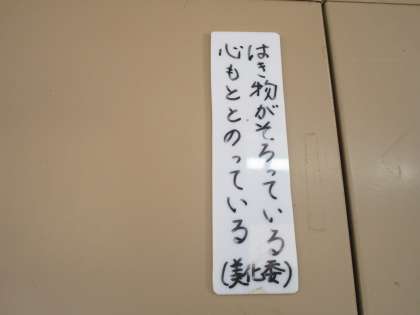 はき物がそろっている
心もととのっている
(美化委)